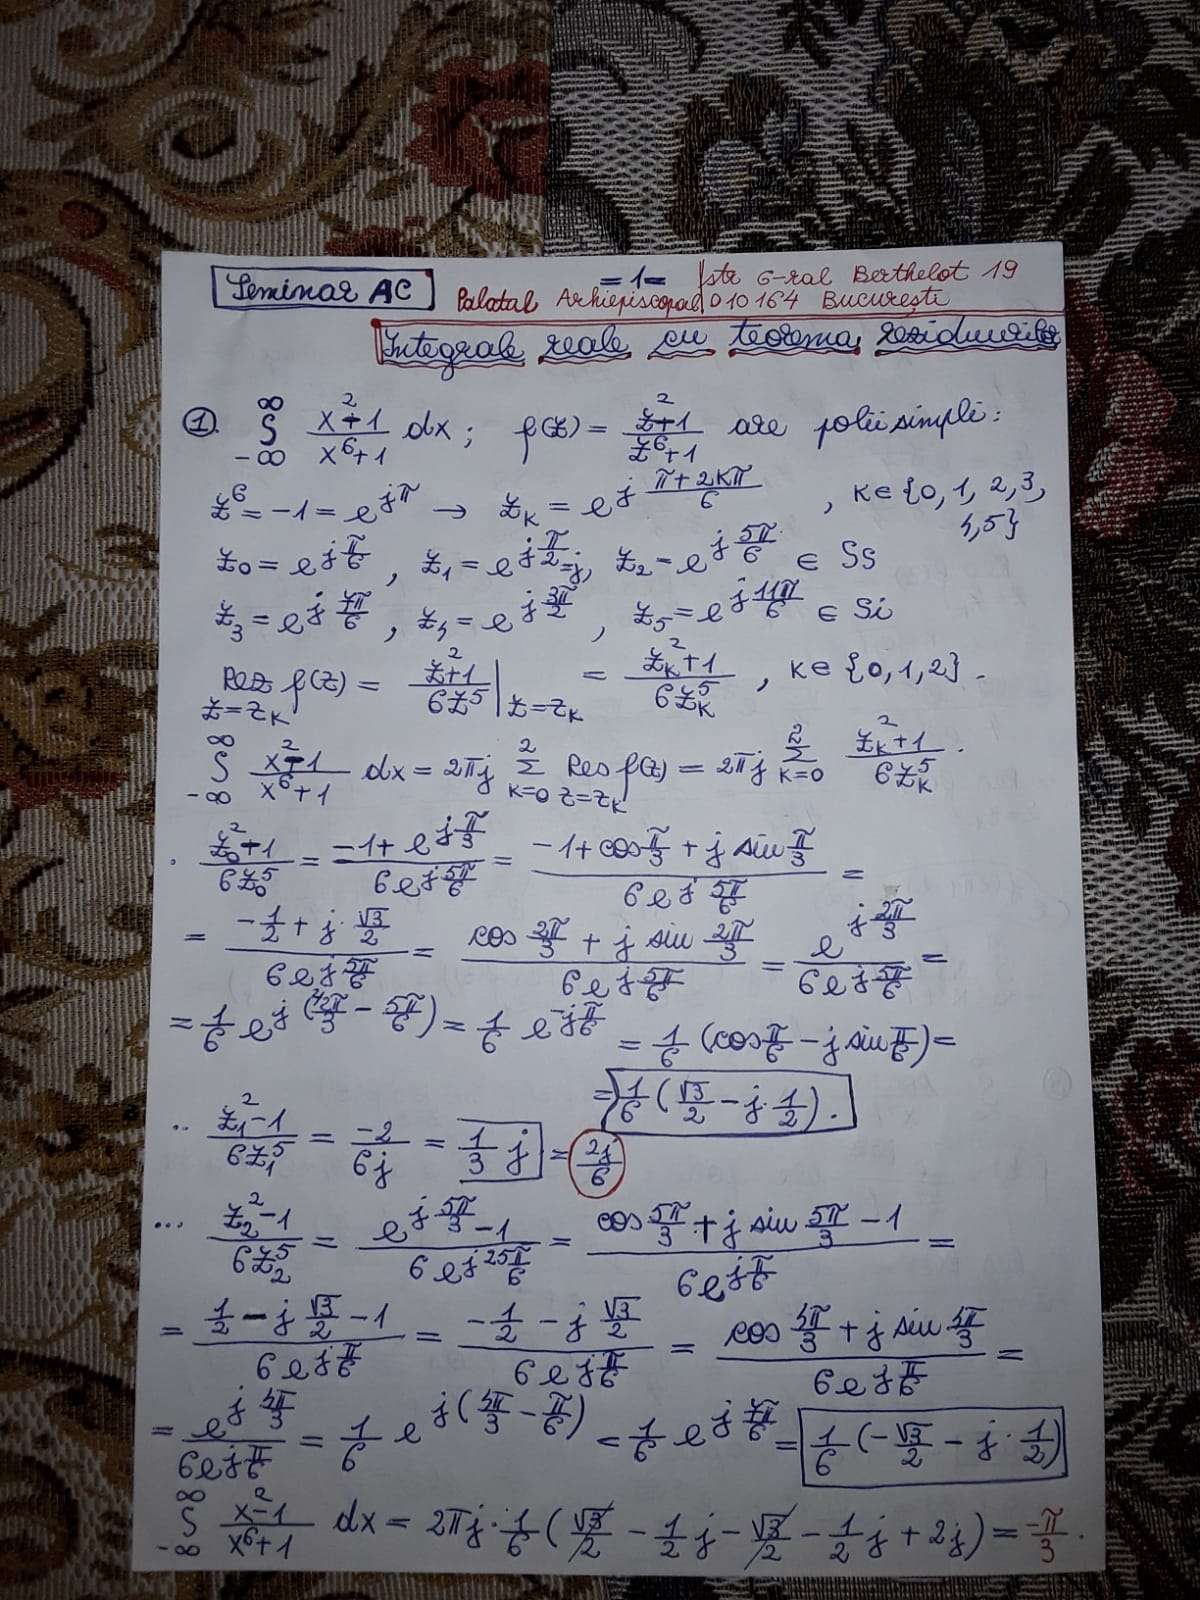 Seminar AC
= 1 =
str G-ral Berthelot 19
Palatul Arhiepiscopal 010164 București
Integrale reale cu teorema reziduurilor
① ∫_{-∞}^{∞} (x²+1)/(x⁶+1) dx ; f(z) = (z²+1)/(z⁶+1) are polii simpli:
z⁶ = -1 = e^{jπ} → z_k = e^{j (π+2kπ)/6} , k∈{0, 1, 2, 3, 4, 5}
z₀ = e^{j π/6} , z₁ = e^{j π/2} = j, z₂ = e^{j 5π/6} ∈ Ss
z₃ = e^{j 7π/6} , z₄ = e^{j 3π/2} , z₅ = e^{j 11π/6} ∈ Si
Rez_{z=z_k} f(z) = (z²+1)/(6z⁵) |_{z=z_k} = (z_k²+1)/(6z_k⁵) , k∈{0,1,2}.
∫_{-∞}^{∞} (x²-1)/(x⁶+1) dx = 2πj Σ_{k=0}^{2} Res_{z=z_k} f(z) = 2πj Σ_{k=0}^{2} (z_k²+1)/(6z_k⁵) .
. (z₀²-1)/(6z₀⁵) = (-1+e^{j π/3})/(6e^{j 5π/6}) = (-1+cos π/3 + j sin π/3)/(6e^{j 5π/6}) =
= (-1/2 + j·√3/2)/(6e^{j 5π/6}) = (cos 2π/3 + j sin 2π/3)/(6e^{j 5π/6}) = e^{j 2π/3}/(6e^{j 5π/6}) =
= 1/6 e^{j(²⁾2π/3 - 5π/6)} = 1/6 e^{-j π/6} = 1/6 (cos π/6 - j sin π/6) =
= 1/6 (√3/2 - j·1/2).
.. (z₁²-1)/(6z₁⁵) = -2/(6j) = 1/3 j = 2j/6
... (z₂²-1)/(6z₂⁵) = (e^{j 5π/3} - 1)/(6e^{j 25π/6}) = (cos 5π/3 + j sin 5π/3 - 1)/(6e^{j π/6}) =
= (1/2 - j √3/2 - 1)/(6e^{j π/6}) = (-1/2 - j √3/2)/(6e^{j π/6}) = (cos 4π/3 + j sin 4π/3)/(6e^{j π/6}) =
= e^{j 4π/3}/(6e^{j π/6}) = 1/6 e^{j(4π/3 - π/6)} = 1/6 e^{j 7π/6} = 1/6 (-√3/2 - j·1/2)
∫_{-∞}^{∞} (x²-1)/(x⁶+1) dx = 2πj·1/6 (√3/2 - 1/2 j - √3/2 - 1/2 j + 2j) = -π/3 .